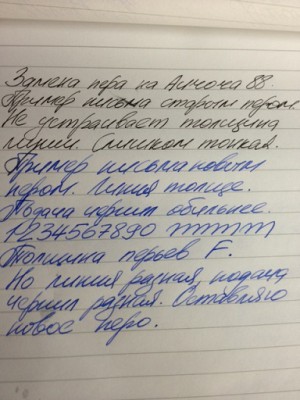 Замена пера на Аличока 88.
Пример письма старым пером.
Не устраивает толщина
линии. Слишком тонкая.
Пример письма новым
пером. Линия толще.
Подача чернил обильнее.
1234567890 mmmm
Толщина перьев F.
Но линия разная, подача
чернил разная. Оставляю
новое перо.